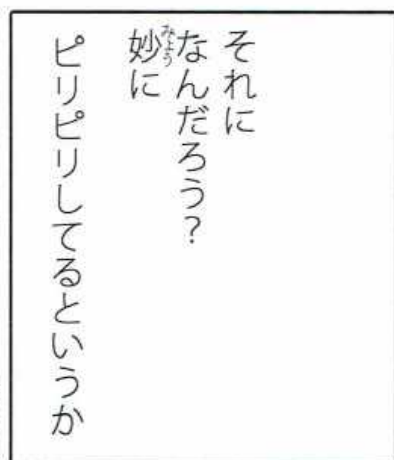 それに
なんだろう？
妙に
ピリピリしてるというか